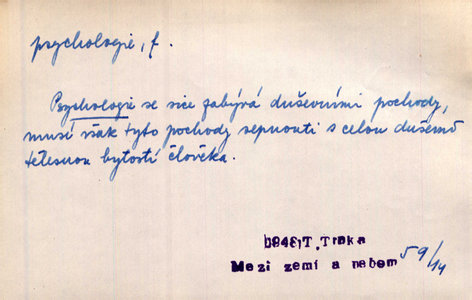 psychologie, f.
Psychologie se sice zabývá duševními pochody,
musí však tyto pochody sepnouti s celou duševně
tělesnou bytostí člověka.
T. Trnka
Mezi zemí a nebem 59/14